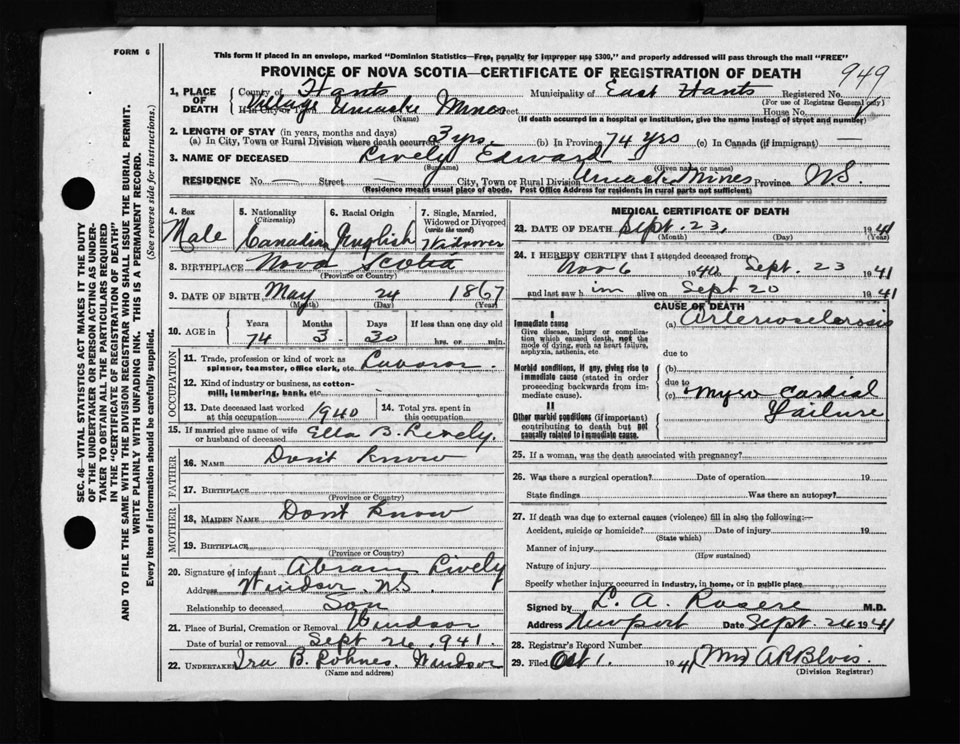 FORM 6
This form if placed in an envelope, marked "Dominion Statistics—Free, penalty for improper use $300," and properly addressed will pass through the mail "FREE"
PROVINCE OF NOVA SCOTIA—CERTIFICATE OF REGISTRATION OF DEATH
949
1. PLACE OF DEATH
County of Hants Municipality of East Hants Registered No.
(For use of Registrar General only)
If in City or Town Village Mines Street House No.
(Name) (If death occurred in a hospital or institution, give the name instead of street and number)
2. LENGTH OF STAY (in years, months and days)
(a) In City, Town or Rural Division where death occurred 3 yrs. (b) In Province 74 yrs (c) In Canada (if immigrant)
3. NAME OF DECEASED Lively Edward
(Surname) (Given name or names)
RESIDENCE No. Street City, Town or Rural Division Mines Province N.S.
(Residence means usual place of abode. Post Office Address for residents in rural parts not sufficient)
4. Sex
Male
5. Nationality
(Citizenship)
Canadian
6. Racial Origin
English
7. Single, Married, Widowed or Divorced
(write the word)
Widower
8. BIRTHPLACE Nova Scotia
(Province or Country)
9. DATE OF BIRTH May 24 1867
(Month) (Day) (Year)
10. AGE in Years Months Days If less than one day old
74 3 30 hrs. or min.
OCCUPATION
11. Trade, profession or kind of work as
spinner, teamster, office clerk, etc.
12. Kind of industry or business, as cotton-
mill, lumbering, bank, etc.
13. Date deceased last worked
at this occupation 1940
14. Total yrs. spent in
this occupation
15. If married give name of wife
or husband of deceased Ella B. Lively.
FATHER
16. NAME Don't Know
17. BIRTHPLACE
(Province or Country)
MOTHER
18. MAIDEN NAME Don't Know
19. BIRTHPLACE
(Province or Country)
20. Signature of informant Abram Lively
Address Windsor N.S.
Relationship to deceased Son
21. Place of Burial, Cremation or Removal Windsor
Date of burial or removal Sept 26, 941.
22. UNDERTAKER Ira B. Windsor
(Name and address)
MEDICAL CERTIFICATE OF DEATH
23. DATE OF DEATH Sept. 23, 1941
(Month) (Day) (Year)
24. I HEREBY CERTIFY that I attended deceased from
Nov 6 1940 Sept. 23 1941
and last saw h im alive on Sept 20 1941
CAUSE OF DEATH
I
Immediate cause
Give disease, injury or complica-
tion which caused death, not the
mode of dying, such as heart failure,
asphyxia, asthenia, etc.
(a) Arteriosclerosis
due to
Morbid conditions, if any, giving rise to
immediate cause (stated in order
proceeding backwards from im-
mediate cause).
(b)
due to
(c) Myro Cardial
Failure
II
Other morbid conditions (if important)
contributing to death but not
causally related to immediate cause.
25. If a woman, was the death associated with pregnancy?
26. Was there a surgical operation? Date of operation 19
State findings Was there an autopsy?
27. If death was due to external causes (violence) fill in also the following:—
Accident, suicide or homicide? Date of injury 19
(State which)
Manner of injury
(How sustained)
Nature of injury
Specify whether injury occurred in industry, in home, or in public place
Signed by L. A. M.D.
Address Newport Date Sept. 24 1941
28. Registrar's Record Number
29. Filed Oct 1. 1941 Mrs A R Blois.
(Division Registrar)
SEC. 46—VITAL STATISTICS ACT MAKES IT THE DUTY
OF THE UNDERTAKER OR PERSON ACTING AS UNDER-
TAKER TO OBTAIN ALL THE PARTICULARS REQUIRED
IN THE "CERTIFICATE OF REGISTRATION OF DEATH"
AND TO FILE THE SAME WITH THE DIVISION REGISTRAR WHO SHALL ISSUE THE BURIAL PERMIT.
WRITE PLAINLY WITH UNFADING INK. THIS IS A PERMANENT RECORD.
Every item of information should be carefully supplied. (See reverse side for instructions.)